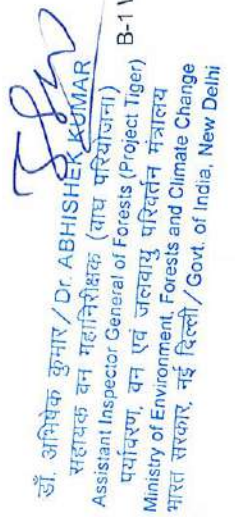 डॉ. अभिषेक कुमार / Dr. ABHISHEK KUMAR
सहायक वन महानिरीक्षक (बाघ परियोजना)
Assistant Inspector General of Forests (Project Tiger)
पर्यावरण, वन एवं जलवायु परिवर्तन मंत्रालय
Ministry of Environment, Forests and Climate Change
भारत सरकार, नई दिल्ली / Govt. of India, New Delhi
B-1